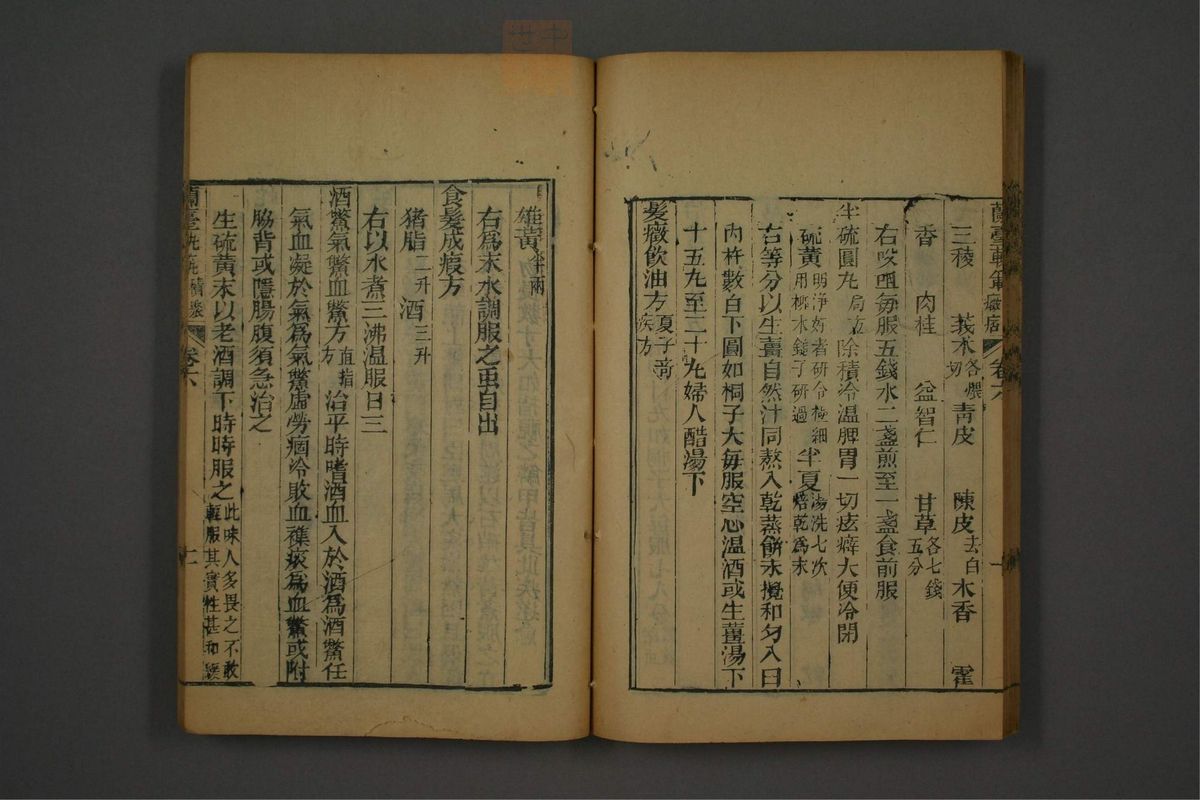 蘭臺軌範 卷六
三稜 莪朮各煨切 青皮 陳皮去白 木香 霍
香 肉桂 益智仁 甘草各七錢五分
右㕮咀每服五錢水二盞煎至一盞食前服
半硫圓局方 除積冷温脾胃一切痃癖大便冷閉
硫黃明淨好者研令極細用柳木鎚子研過 半夏湯洗七次焙乾爲末
右等分以生薑自然汁同熬入乾蒸餅末攪和勻入臼
內杵數百下圓如桐子大每服空心温酒或生薑湯下
十五丸至二十丸婦人醋湯下
髮癥飲油方夏子益疾方
雄黃半兩
右爲末水調服之蟲自出
食髮成瘕方
猪脂二升 酒三升
右以水煮三沸温服日三
酒鱉氣鱉血鱉方直指方 治平時嗜酒血入於酒爲酒鱉任
氣血凝於氣爲氣鱉虛勞痼冷敗血雜痰爲血鱉或附
脇背或隱腸腹須急治之
生硫黃末以老酒調下時時服之此味人多畏之不敢輕服其實性甚和緩
蘭臺軌範 卷六